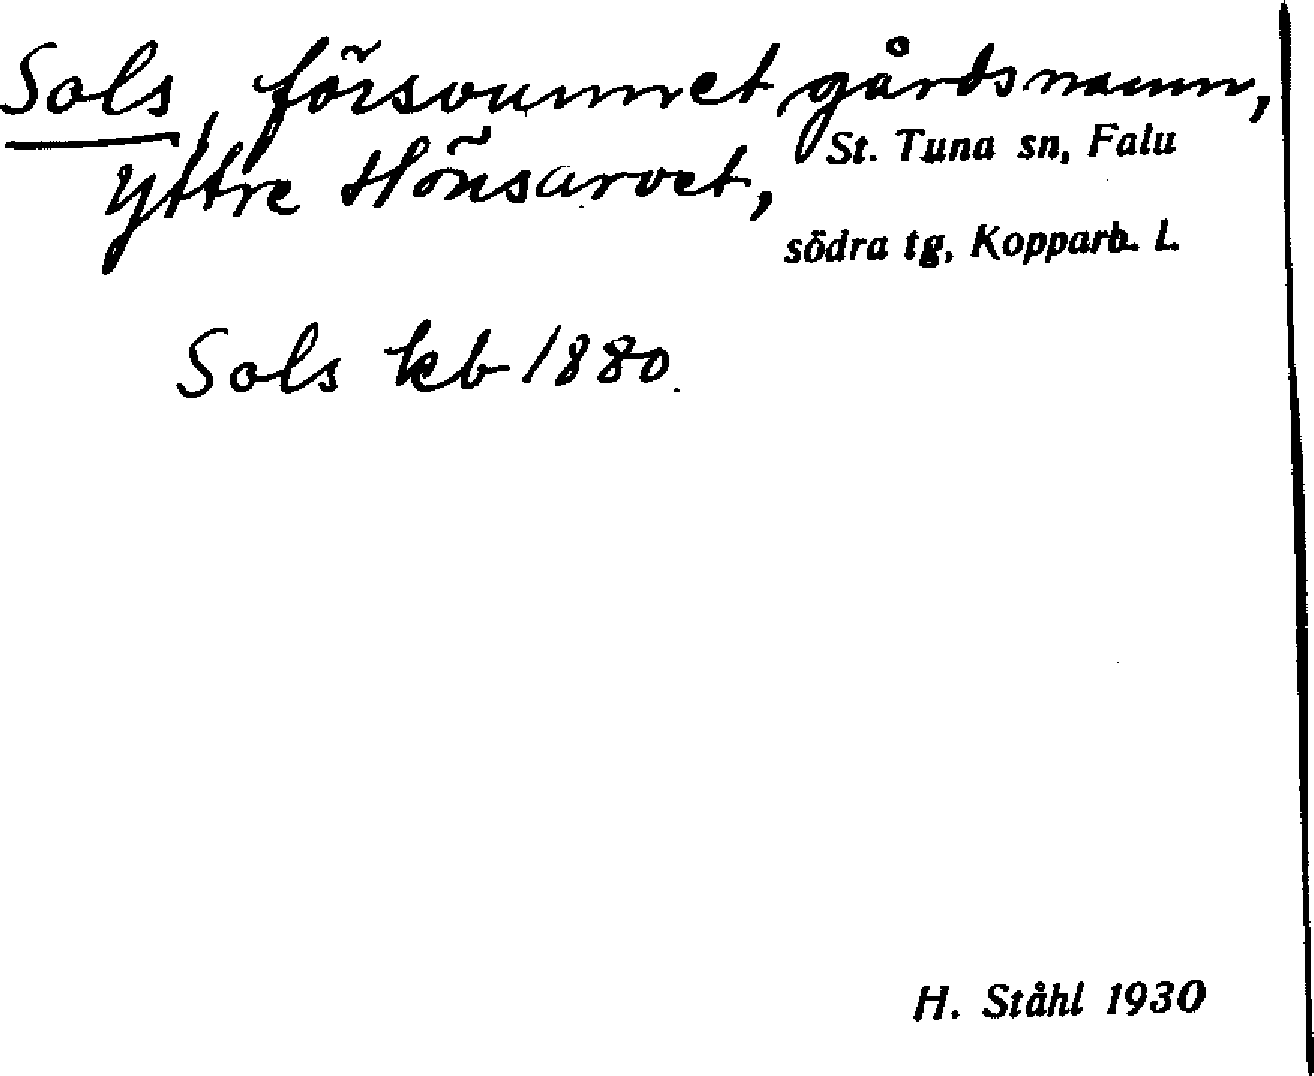 Sols, försvunnet gårdsnamn,
Yttre Hönsarvet, St. Tuna sn, Falu
södra tg, Kopparb. L.
Sols kb 1880.
H. Ståhl 1930